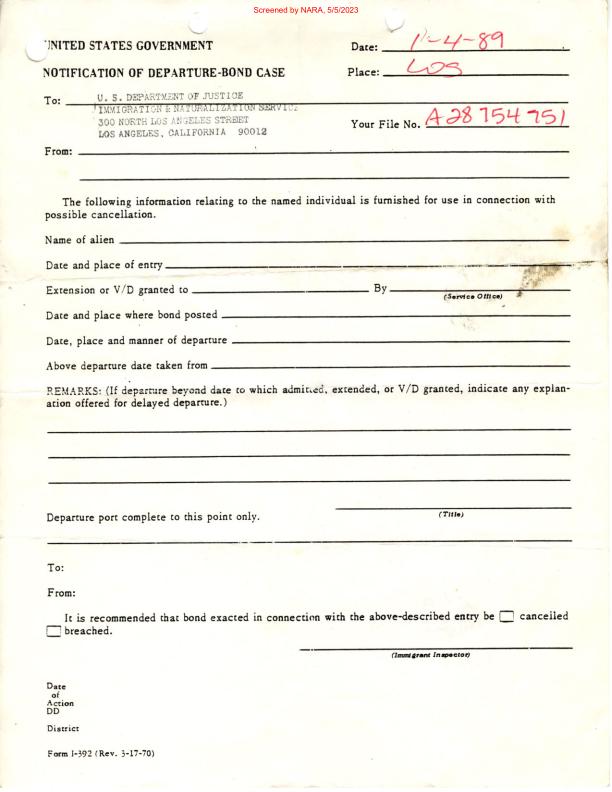 Screened by NARA, 5/5/2023
UNITED STATES GOVERNMENT
Date: 11-4-89
NOTIFICATION OF DEPARTURE-BOND CASE
Place: LOS
To: U. S. DEPARTMENT OF JUSTICE
IMMIGRATION & NATURALIZATION SERVICE
300 NORTH LOS ANGELES STREET
LOS ANGELES, CALIFORNIA 90012
Your File No. A28 754 751
From:
The following information relating to the named individual is furnished for use in connection with
possible cancellation.
Name of alien
Date and place of entry
Extension or V/D granted to By
(Service Office)
Date and place where bond posted
Date, place and manner of departure
Above departure date taken from
REMARKS: (If departure beyond date to which admitted, extended, or V/D granted, indicate any explan-
ation offered for delayed departure.)
Departure port complete to this point only.
(Title)
To:
From:
It is recommended that bond exacted in connection with the above-described entry be cancelled
breached.
(Immigrant Inspector)
Date
of
Action
DD
District
Form I-392 (Rev. 3-17-70)